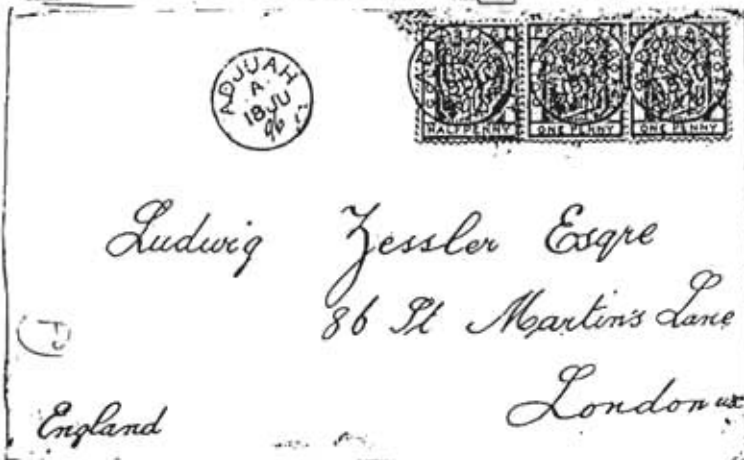 ADJUAH
A
18 JU
96
HALFPENNY ONE PENNY ONE PENNY
Ludwig Zessler Esqre
86 St Martin's Lane
London
England